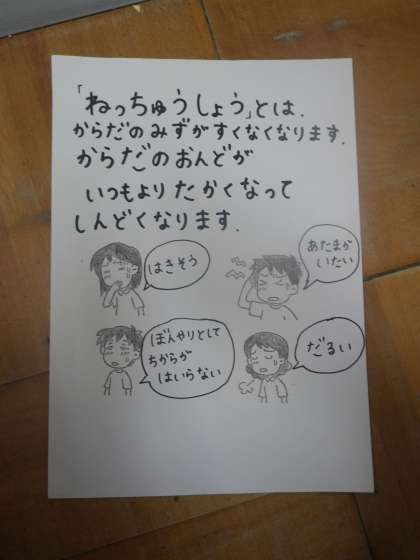 「ねっちゅうしょう」とは．
からだのみずがすくなくなります．
からだのおんどが
いつもよりたかくなって
しんどくなります．
はきそう
あたまが
いたい
ぼんやりとして
ちからが
はいらない
だるい